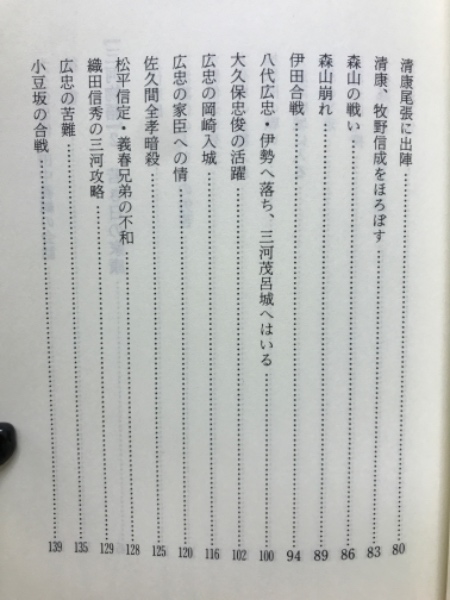 清康尾張に出陣……80
清康、牧野信成をほろぼす……83
森山の戦い……86
森山崩れ……89
伊田合戦……94
八代広忠・伊勢へ落ち、三河茂呂城へはいる……100
大久保忠俊の活躍……102
広忠の岡崎入城……116
広忠の家臣への情……120
佐久間全孝暗殺……125
松平信定・義春兄弟の不和……128
織田信秀の三河攻略……129
広忠の苦難……135
小豆坂の合戦……139